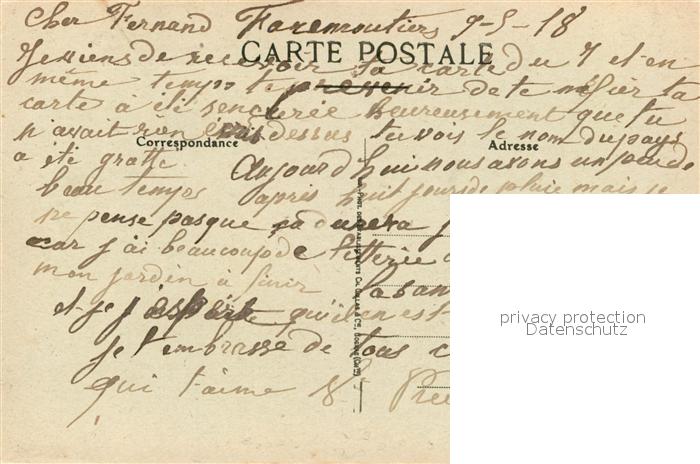 Cher Fernand Faremoutiers 9-5-18
CARTE POSTALE
Je viens de recevoir ta carte du 7 et en
même temps te prevenir de te méfier ta
carte à été sencurée heureusement que tu
n'avait rien écris dessus tu vois le nom du pays
Correspondance
Adresse
a été gratté Aujourd'hui nous avons un peu de
beau temps après huit jours de pluie mais je
ne pense pas que sa durera
car j'ai beaucoup de
mon jardin à finir
et je j'espère qu'il en est
je t'embrasse de tous
qui t'aime
privacy protection
Datenschutz